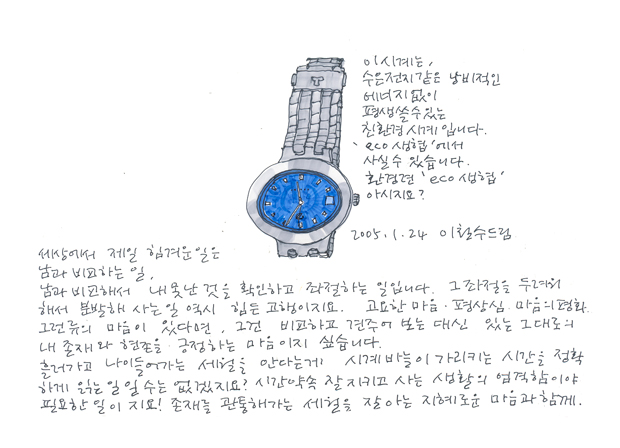 이 시계는,
수은전지 같은 낭비적인
에너지 없이
평생 쓸 수 있는
친환경 시계입니다.
'eco 생협'에서
사실 수 있습니다.
환경련 'eco 생협'
아시지요?
2005.1.24 이철수드림
세상에서 제일 힘겨운 일은
남과 비교하는 일,
남과 비교해서 내 못난 것을 확인하고 좌절하는 일입니다. 그 좌절을 두려워
해서 분발해 사는 일 역시 힘든 고행이지요. 고요한 마음·평상심·마음의 평화.
그런 류의 마음이 있다면, 그건 비교하고 견주어 보는 대신 있는 그대로의
내 존재와 현존을 긍정하는 마음이지 싶습니다.
흘러가고 나이들어가는 세월을 안다는 게 시계바늘이 가리키는 시간을 정확
하게 읽는 일일 수는 없겠지요? 시간약속 잘 지키고 사는 생활의 엄격함이야
필요한 일이지요! 존재를 관통해가는 세월을 잘 아는 지혜로운 마음과 함께.